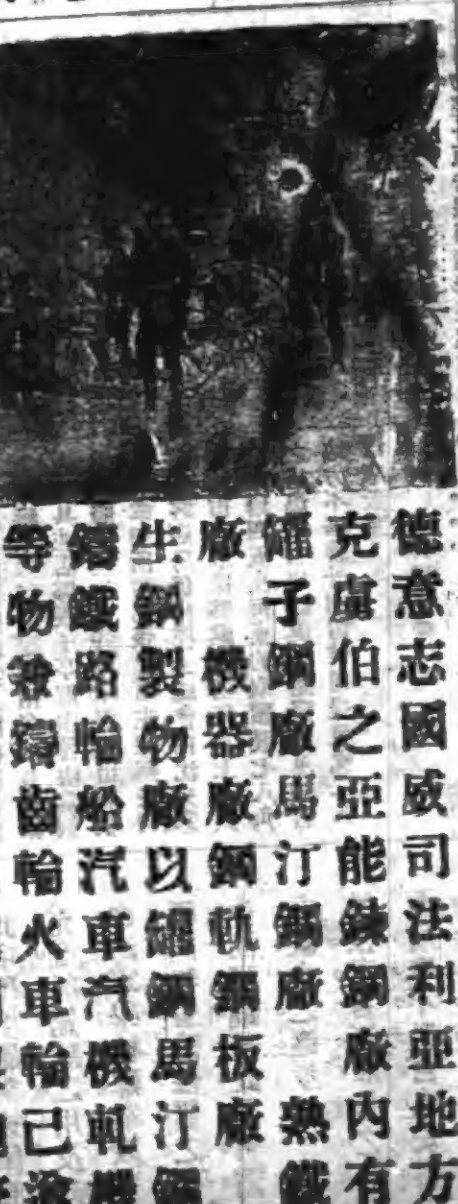 德意志國威司法利亞地方
克虜伯之亞能鍊鋼廠內有
罐子鋼廠馬汀鋼廠 熟鐵
廠 機器廠鋼軌鋼板廠
生鋼製物廠以罐鋼馬汀鋼
鑄鐵路輪船汽車汽機軋機
等物兼鑄齒輪火車輪己